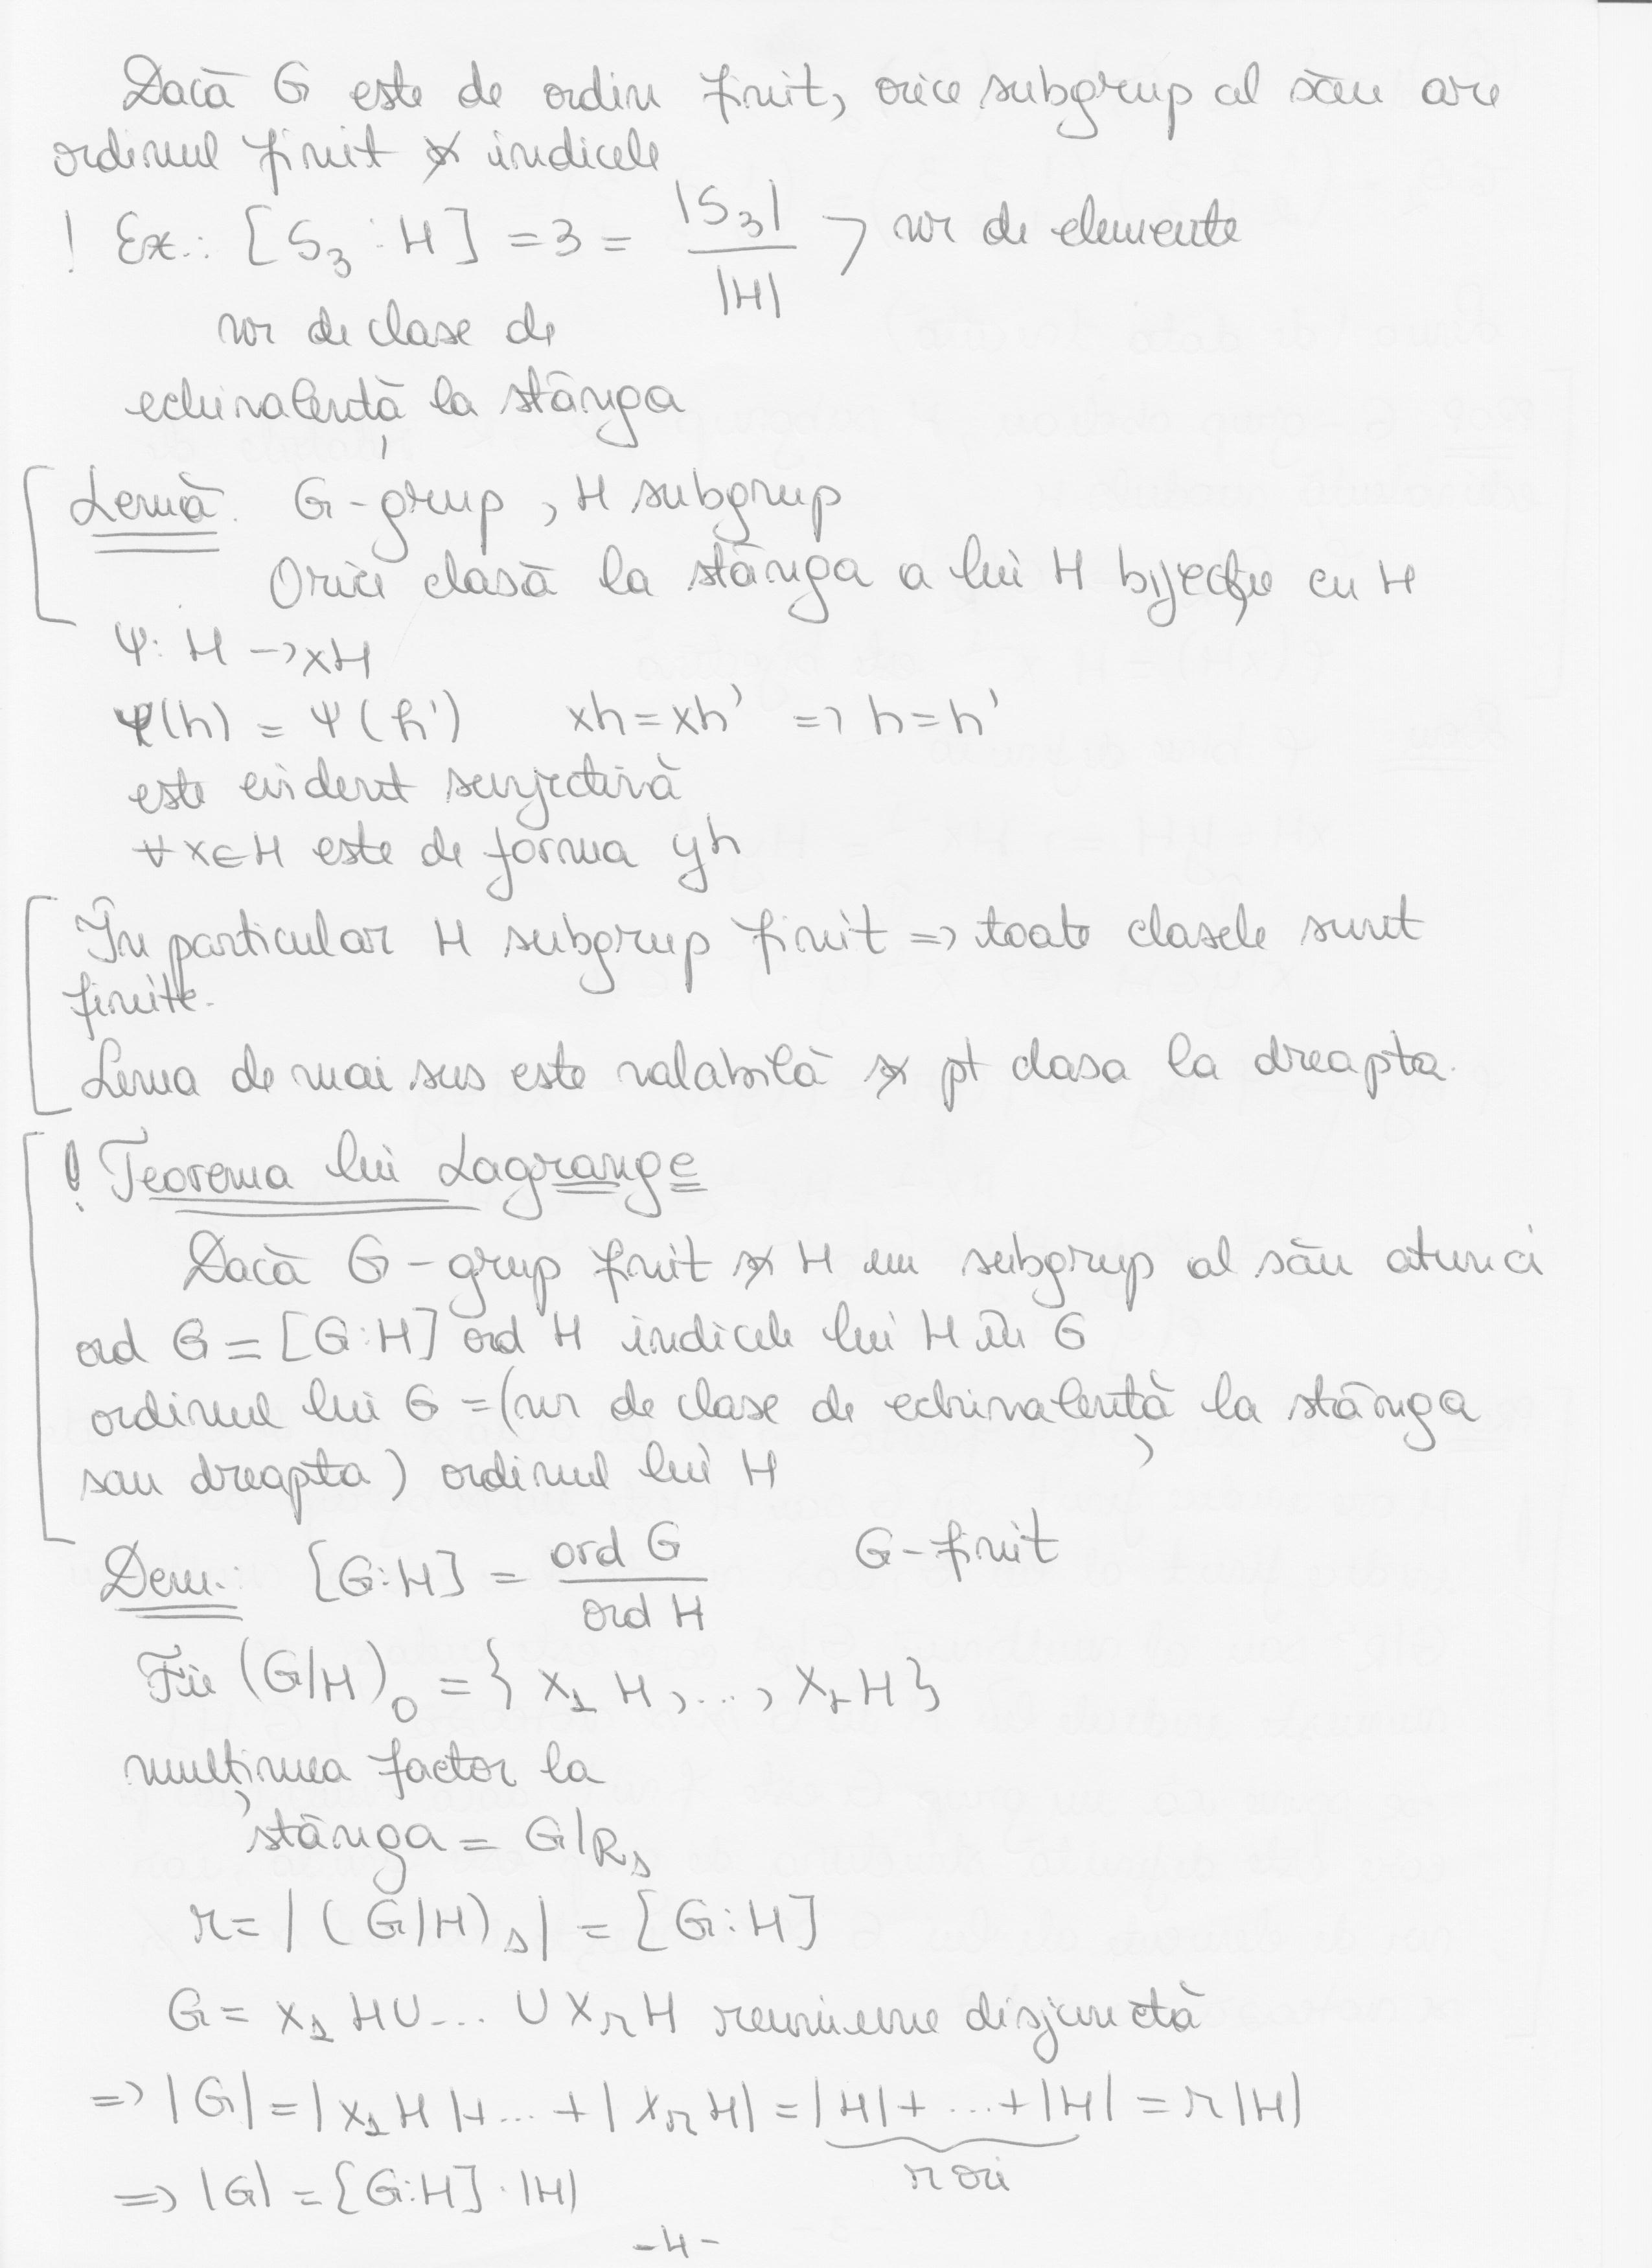 Dacă G este de ordin finit, orice subgrup al său are
ordinul finit și indicele
! Ex.: [S₃:H] = 3 = |S₃| / |H| > nr de elemente
nr de clase de
echivalență la stânga
Lemă. G-grup, H subgrup
Orice clasă la stânga a lui H bijecție cu H
Ψ: H → xH
Ψ(h) = Ψ(h') xh = xh' => h = h'
este evident surjectivă
∀x∈H este de forma yh
În particular H subgrup finit => toate clasele sunt
finite.
Lema de mai sus este valabilă și pt clasa la dreapta.
! Teorema lui Lagrange
Dacă G-grup finit și H un subgrup al său atunci
ord G = [G:H] ord H indicele lui H în G
ordinul lui G = (nr de clase de echivalență la stânga
sau dreapta) ordinul lui H
Dem.: [G:H] = ord G / ord H G-finit
Fie (G/H)₀ = {x₁H, ..., xᵣH}
mulțimea factor la
stânga = G/Rₛ
r = |(G/H)ₛ| = [G:H]
G = x₁H∪...∪xᵣH reuniune disjunctă
=> |G| = |x₁H|+...+|xᵣH| = |H|+...+|H| = r|H|
r ori
=> |G| = [G:H]·|H|
-4-